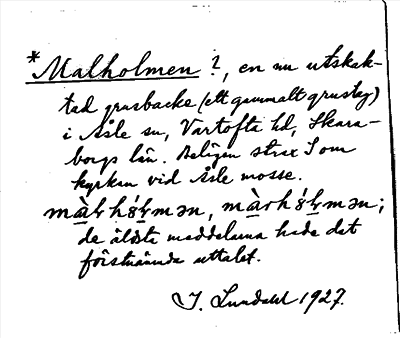 *Malholmen ?, en nu utskak-
tad grusbacke (ett gammalt grustag)
i Åsle sn, Vartofta hd, Skara-
borgs län. Belägen strax S om
kyrkan vid Åsle mosse.
de äldsta meddelarna hade det
förstnämnda uttalet.
J. Lundahl 1927.